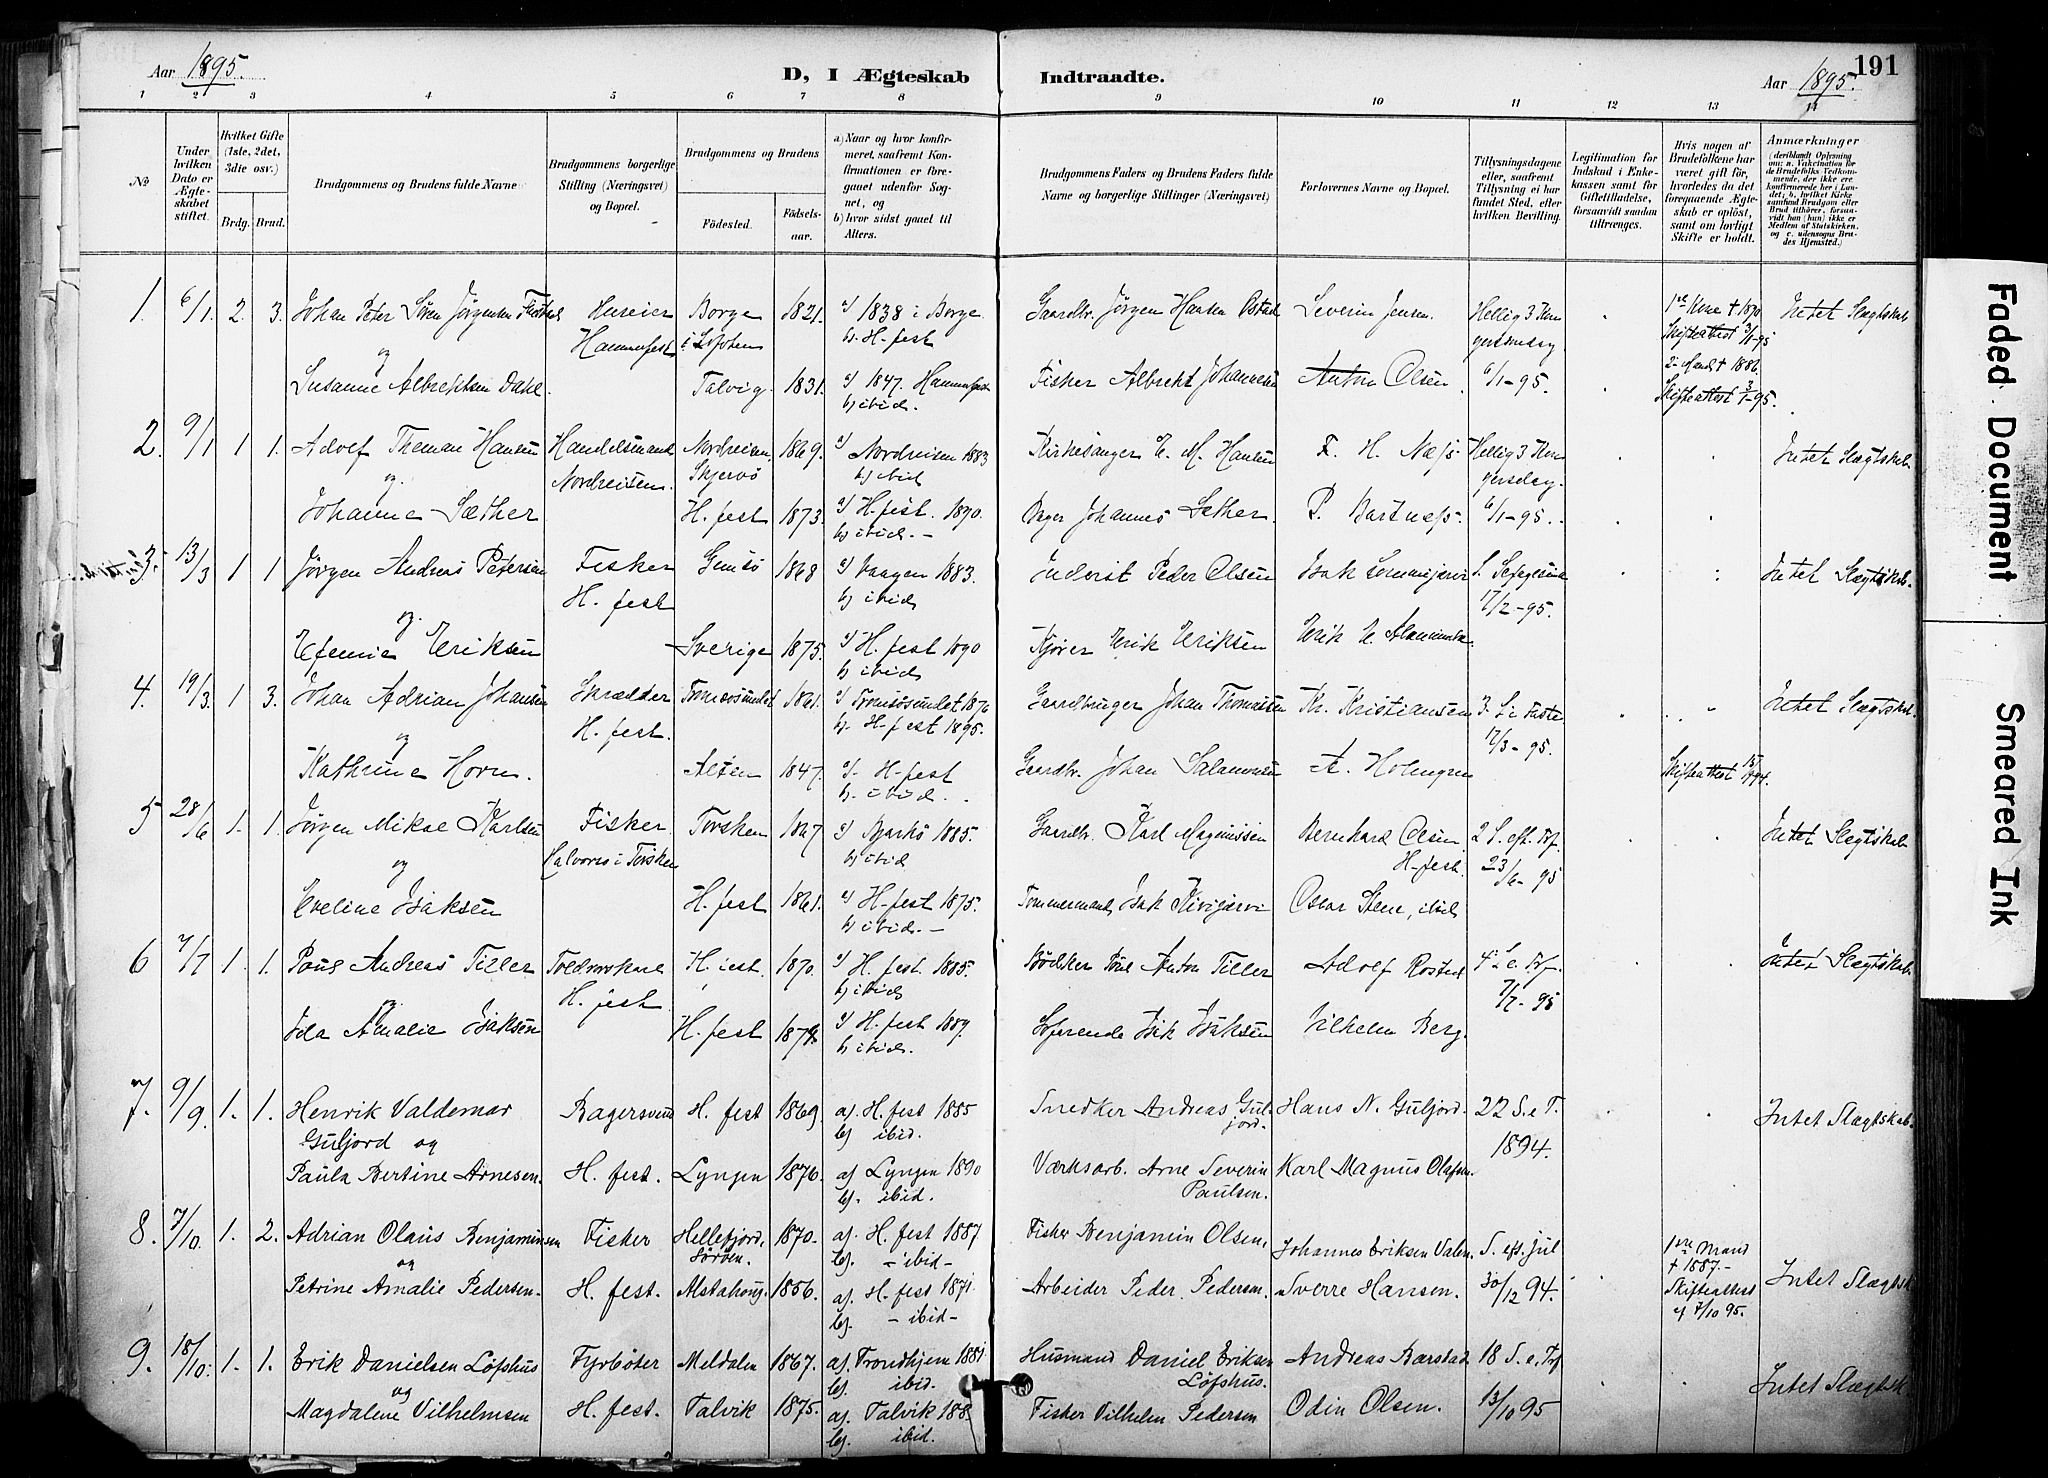 Aar 1895.
D, I Ægteskab
Indtraadte.
Aar 1895.
191
1 2 3 4 5 6 7 8 9 10 11 12 13 14
No
Under hvilken Dato er Ægteskabet stiftet.
Hvilket Gifte (1ste, 2det, 3die osv.)
Brdg. Brud.
Brudgommens og Brudens fulde Navne
Brudgommens borgerlige Stilling (Næringsvei) og Bopæl.
Brudgommens og Brudens
Födested.
Födselsaar.
a) Naar og hvor konfirmeret, saafremt Konfirmationen er foregaaet udenfor Sognet, og
b) hvor sidst gaaet til Alters.
Brudgommens Faders og Brudens Faders fulde Navne og borgerlige Stillinger (Næringsvei)
Forlovernes Navne og Bopæl.
Tillysningsdagene eller, saafremt Tillysning ei har fundet Sted, efter hvilken Bevilling.
Legitimation for Indskud i Enkekassen samt for Giftetilladelse, forsaavidt saadan tiltrænges.
Hvis nogen af Brudefolkene har været gift för, hvorledes da det foregaaende Ægteskab er oplöst, samt om lovligt Skifte er holdt.
Anmærkninger
(deriblandt Oplysning om: a. Vakcination for de Brudefolks Vedkommende, der ikke ere konfirmerede her i Landet; b. hvilket Kirkesamfund Brudgom eller Brud tilhörer, forsaavidt han (hun) ikke er Medlem af Statskirken, og c. udensogns Brudes Hjemsted.)
1. 6/1. 2. 3. Johan Peter Sören Jörgensen Huseier Borge 1821. a) 1838 i Borge Gaardbr. Jörgen Hansen Severin Jensen. Hellig 3 Kon 1ste Kone † 1870 Intet Slægtskab
og Hammerfest i Lofoten b. H-fest gersdag Skifteattest 3/1-95
Susanne Albrektsen Dahl. Talvig. 1831. a) 1847. Hammerfest Fisker Albrekt Johannesen Anton Olsen 6/1-95. 2. Mand † 1886.
b) ibid. Skifteattest 3/1-95.
2. 9/1 1 1. Adolf Theman Hansen Handelsmand Nordreisen, 1869. a) Nordreisen 1883 Kirkesanger E. M. Hansen F. H. Næss Hellig 3 Kon Intet Slægtskab
og. Nordreisen. Skjervö b) ibid gersdag.
Johanne Sæther H. fest 1873. a) H. fest. 1890. Johannes Sæther. P. Bartness. 6/1-95.
b) ibid. -
3. 13/3 1 1 Jörgen Andreas Petersen Fisker Gimsö 1868 a) Vaagen 1883. Inderst Peder Olsen Isak 17/2-95. Intet Slægtskab.
og. H. fest b) ibid
Efenie Eriksen Sverige 1875. a) H. fest 1890 Erik Eriksen Erik E.
b) ibid
4. 19/3 1 3. Johan Adrian Johansen Skrædder Tromsösundet 1861. a) Tromsösundet 1876 Gaardbruger Johan Thomassen Kr. Kristiansen 3. S. i Faste Intet Slægtskab.
og H. fest. b. H-fest 1895. 17/3-95.
Kathrine Horn. Alten 1847. a. H-fest Gaardbr. Johan Salamonsen A. Holmgren Skifteattest
b. ibid.
5 28/6 1. 1. Jörgen Mikal Karlsen Fisker Torsken 1867 a) Bjarkö 1885. Gaardbr. Karl Magnussen Bernhard Olsen 2 S. eft. Trf. Intet Slægtskab
og i Torsken b) ibid H-fest. 23/6-95
Eveline Isaksen H. fest 1861. a) H-fest 1875. Tömmermand Isak Kivijarvi Oscar Steen, ibid
b) ibid. -
6 7/7 1. 1. Poul Andreas Tiller H. fest. 1870. a) H. fest. 1885. Bödker Poul Anton Tiller Adolf Rostad 4. S. e. Trf. Intet Slægtskab
og H. fest b) ibid 7/7-95
Ida Amalie Isaksen H. fest 1874. a) H. fest 1889. Isak Isaksen Vilhelm Berg.
b) ibid.
7. 9/9. 1. 1. Henrik Valdemar Bagersvend H. fest 1869. a). H. fest 1885 Snedker Andreas Guljord. Hans N. Guljord. 22 S. e T. Intet Slægtskab.
Guljord og b) ibid. 1894.
Paula Bertine Arnesen. H. fest. Lyngen 1876. a) Lyngen 1890 Værksarb. Arne Severin Karl Magnus Olafsen.
b). ibid. Paulsen.
8. 7/10. 1. 2. Adrian Olaus Benjaminsen Fisker Hellefjord, 1870. a). H. fest 1887 Fisker Benjamin Olsen, Johannes Eriksen Valen S. eft. Jul 1ste Mand Intet Slægtsk
og Söröen. b). - ibid - † 1887. -
Petrine Amalie Pedersen. H. fest. Alstahoug. 1856. a). H. fest 1871. Arbeider Peder Pedersen. Sverre Hansen. 30/12 94. Skifteattest
b). - ibid - af 7/10 95.
9. 18/10. 1. 1. Erik Danielsen Löfshus Fyrböter Meldalen 1867. a). Trondhjem 1881. Husmand Daniel Eriksen Andreas Barstad 18 S. e. Trf Intet Slægtsk
og b). ibid. Löfshus. 13/10 95
Magdalene Vilhelmsen H. fest. Talvik 1875. a). Talvik Fisker Vilhelm Pedersen Odin Olsen.
b). ibid.
Faded Document
Smeared Ink